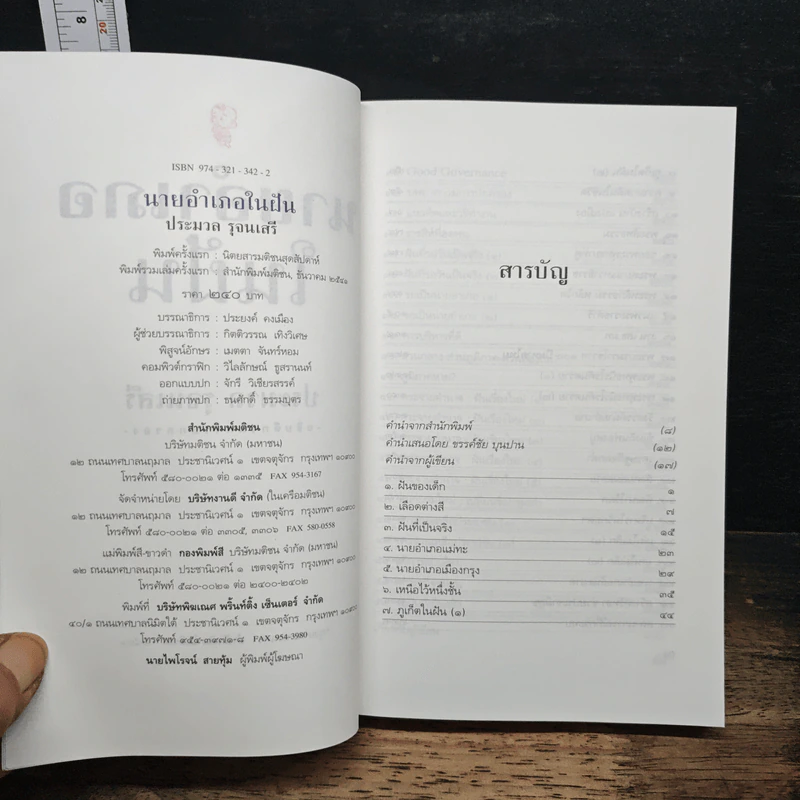 8
20
ISBN 974 - 321 - 342 - 2
นายอำเภอในฝัน
ประมวล รุจนเสรี
พิมพ์ครั้งแรก : นิตยสารมติชนสุดสัปดาห์
พิมพ์รวมเล่มครั้งแรก : สำนักพิมพ์มติชน, ธันวาคม ๒๕๔๑
ราคา ๒๔๐ บาท
บรรณาธิการ : ประยงค์ คงเมือง
ผู้ช่วยบรรณาธิการ : กิตติวรรณ เทิงวิเศษ
พิสูจน์อักษร : เมตตา จันทร์หอม
คอมพิวต์กราฟิก : วิไลลักษณ์ ชูสรานนท์
ออกแบบปก : จักรี วิเชียรสรรค์
ถ่ายภาพปก : ธนศักดิ์ ธรรมบุตร
สำนักพิมพ์มติชน
บริษัทมติชน จำกัด (มหาชน)
๑๒ ถนนเทศบาลนฤมาล ประชานิเวศน์ ๑ เขตจตุจักร กรุงเทพฯ ๑๐๙๐๐
โทรศัพท์ ๕๘๐-๐๐๒๑ ต่อ ๓๓๐๕, ๓๓๐๖ FAX 954-3167
จัดจำหน่ายโดย บริษัทงานดี จำกัด (ในเครือมติชน)
๑๒ ถนนเทศบาลนฤมาล ประชานิเวศน์ ๑ เขตจตุจักร กรุงเทพฯ ๑๐๙๐๐
โทรศัพท์ ๕๘๐-๐๐๒๑ ต่อ ๓๓๐๕, ๓๓๐๖ FAX 580-0558
แม่พิมพ์สี-ขาวดำ กองพิมพ์สี บริษัทมติชน จำกัด (มหาชน)
๑๒ ถนนเทศบาลนฤมาล ประชานิเวศน์ ๑ เขตจตุจักร กรุงเทพฯ ๑๐๙๐๐
โทรศัพท์ ๕๘๐-๐๐๒๑ ต่อ ๒๔๐๐-๒๔๐๒
พิมพ์ที่ บริษัทพิฆเณศ พริ้นท์ติ้ง เซ็นเตอร์ จำกัด
๔๐/๑ ถนนเทศบาลนิมิตใต้ ประชานิเวศน์ ๑ เขตจตุจักร กรุงเทพฯ ๑๐๙๐๐
โทรศัพท์ ๙๕๔-๓๙๗๑-๘ FAX 954-3980
นายไพโรจน์ สายทุ้ม ผู้พิมพ์ผู้โฆษณา
สารบัญ
คำนำจากสำนักพิมพ์ (๘)
คำนำเสนอโดย ขรรค์ชัย บุนปาน (๑๒)
คำนำจากผู้เขียน (๑๗)
๑. ฝันของเด็ก ๑
๒. เลือดต่างสี ๗
๓. ฝันที่เป็นจริง ๑๕
๔. นายอำเภอแม่ทะ ๒๓
๕. นายอำเภอเมืองกรุง ๒๙
๖. เหนือไว้หนึ่งชั้น ๓๕
๗. ภูเก็ตในฝัน (๑) ๔๔